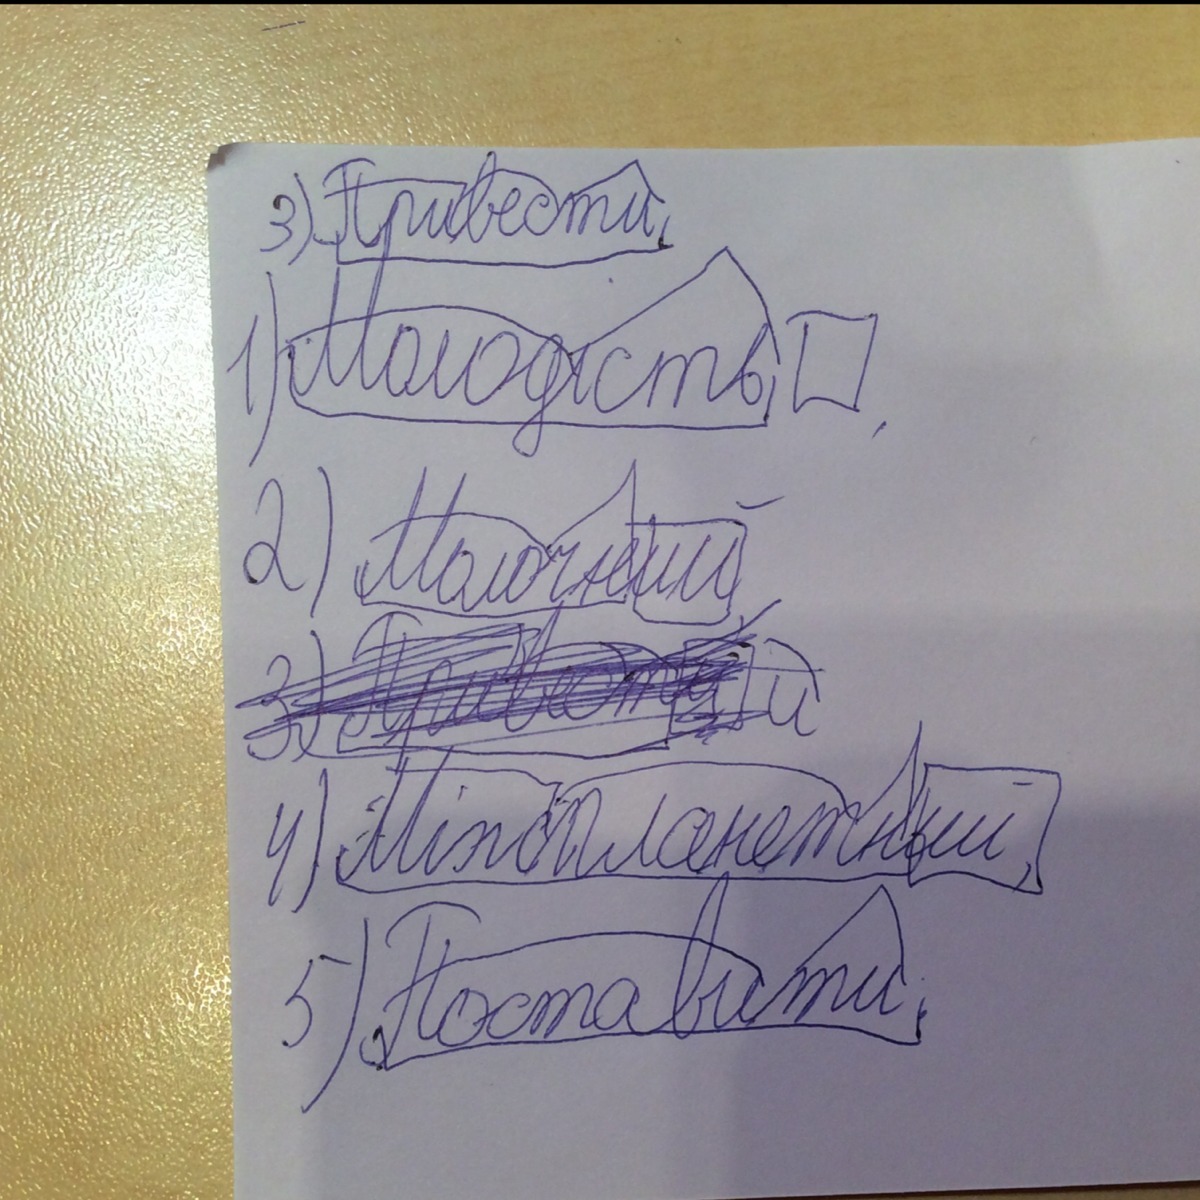 3) Привести
1) Молодість
2) Молочний
3) Привести
4) Міжпланетний
5) Поставити